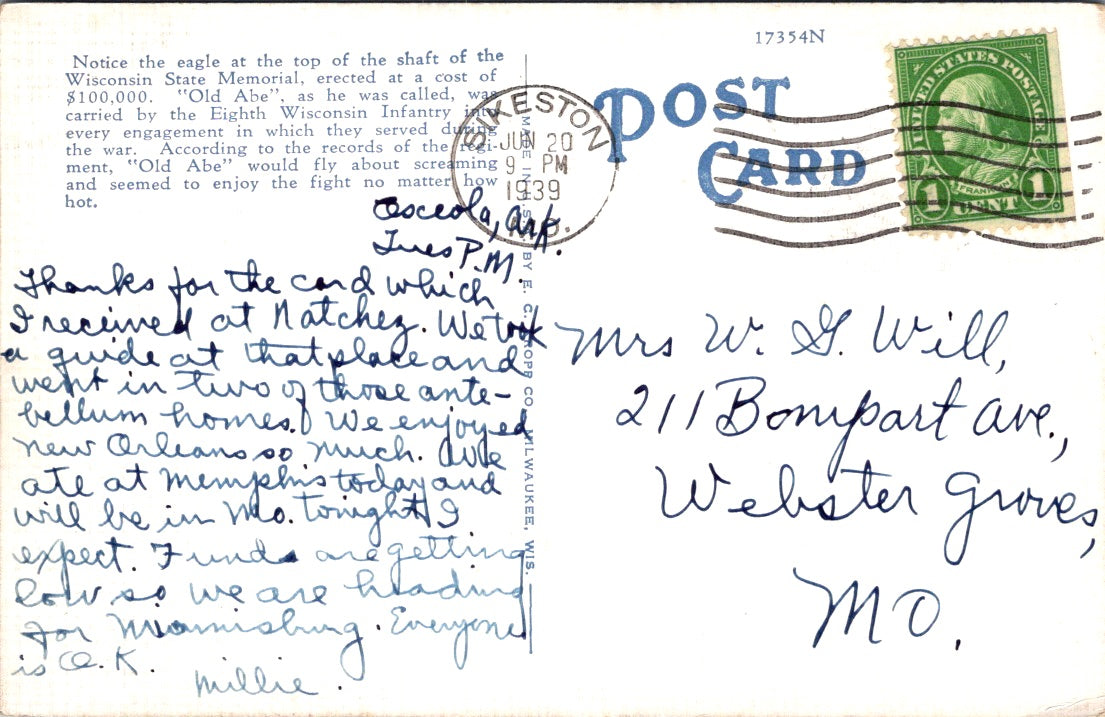 Notice the eagle at the top of the shaft of the
Wisconsin State Memorial, erected at a cost of
$100,000. "Old Abe", as he was called, was
carried by the Eighth Wisconsin Infantry into
every engagement in which they served during
the war. According to the records of the regi-
ment, "Old Abe" would fly about screaming
and seemed to enjoy the fight no matter how
hot.
Osceola, Ark.
Tues P.M.
Thanks for the card which
I received at Natchez. We took
a guide at that place and
went in two of those ante-
bellum homes. We enjoyed
New Orleans so much. We
ate at Memphis today and
will be in Mo. tonight I
expect. Funds are getting
low so we are heading
for Miamisburg. Everyone
is O.K.
Millie.
MADE IN U.S.A. BY E. C. KROPP CO., MILWAUKEE, WIS.
17354N
POST
CARD
SIKESTON
JUN 20
9 PM
1939
UNITED STATES POSTAGE
FRANKLIN
1 CENT 1
Mrs W. G. Will,
211 Bompart Ave.,
Webster Groves,
Mo.